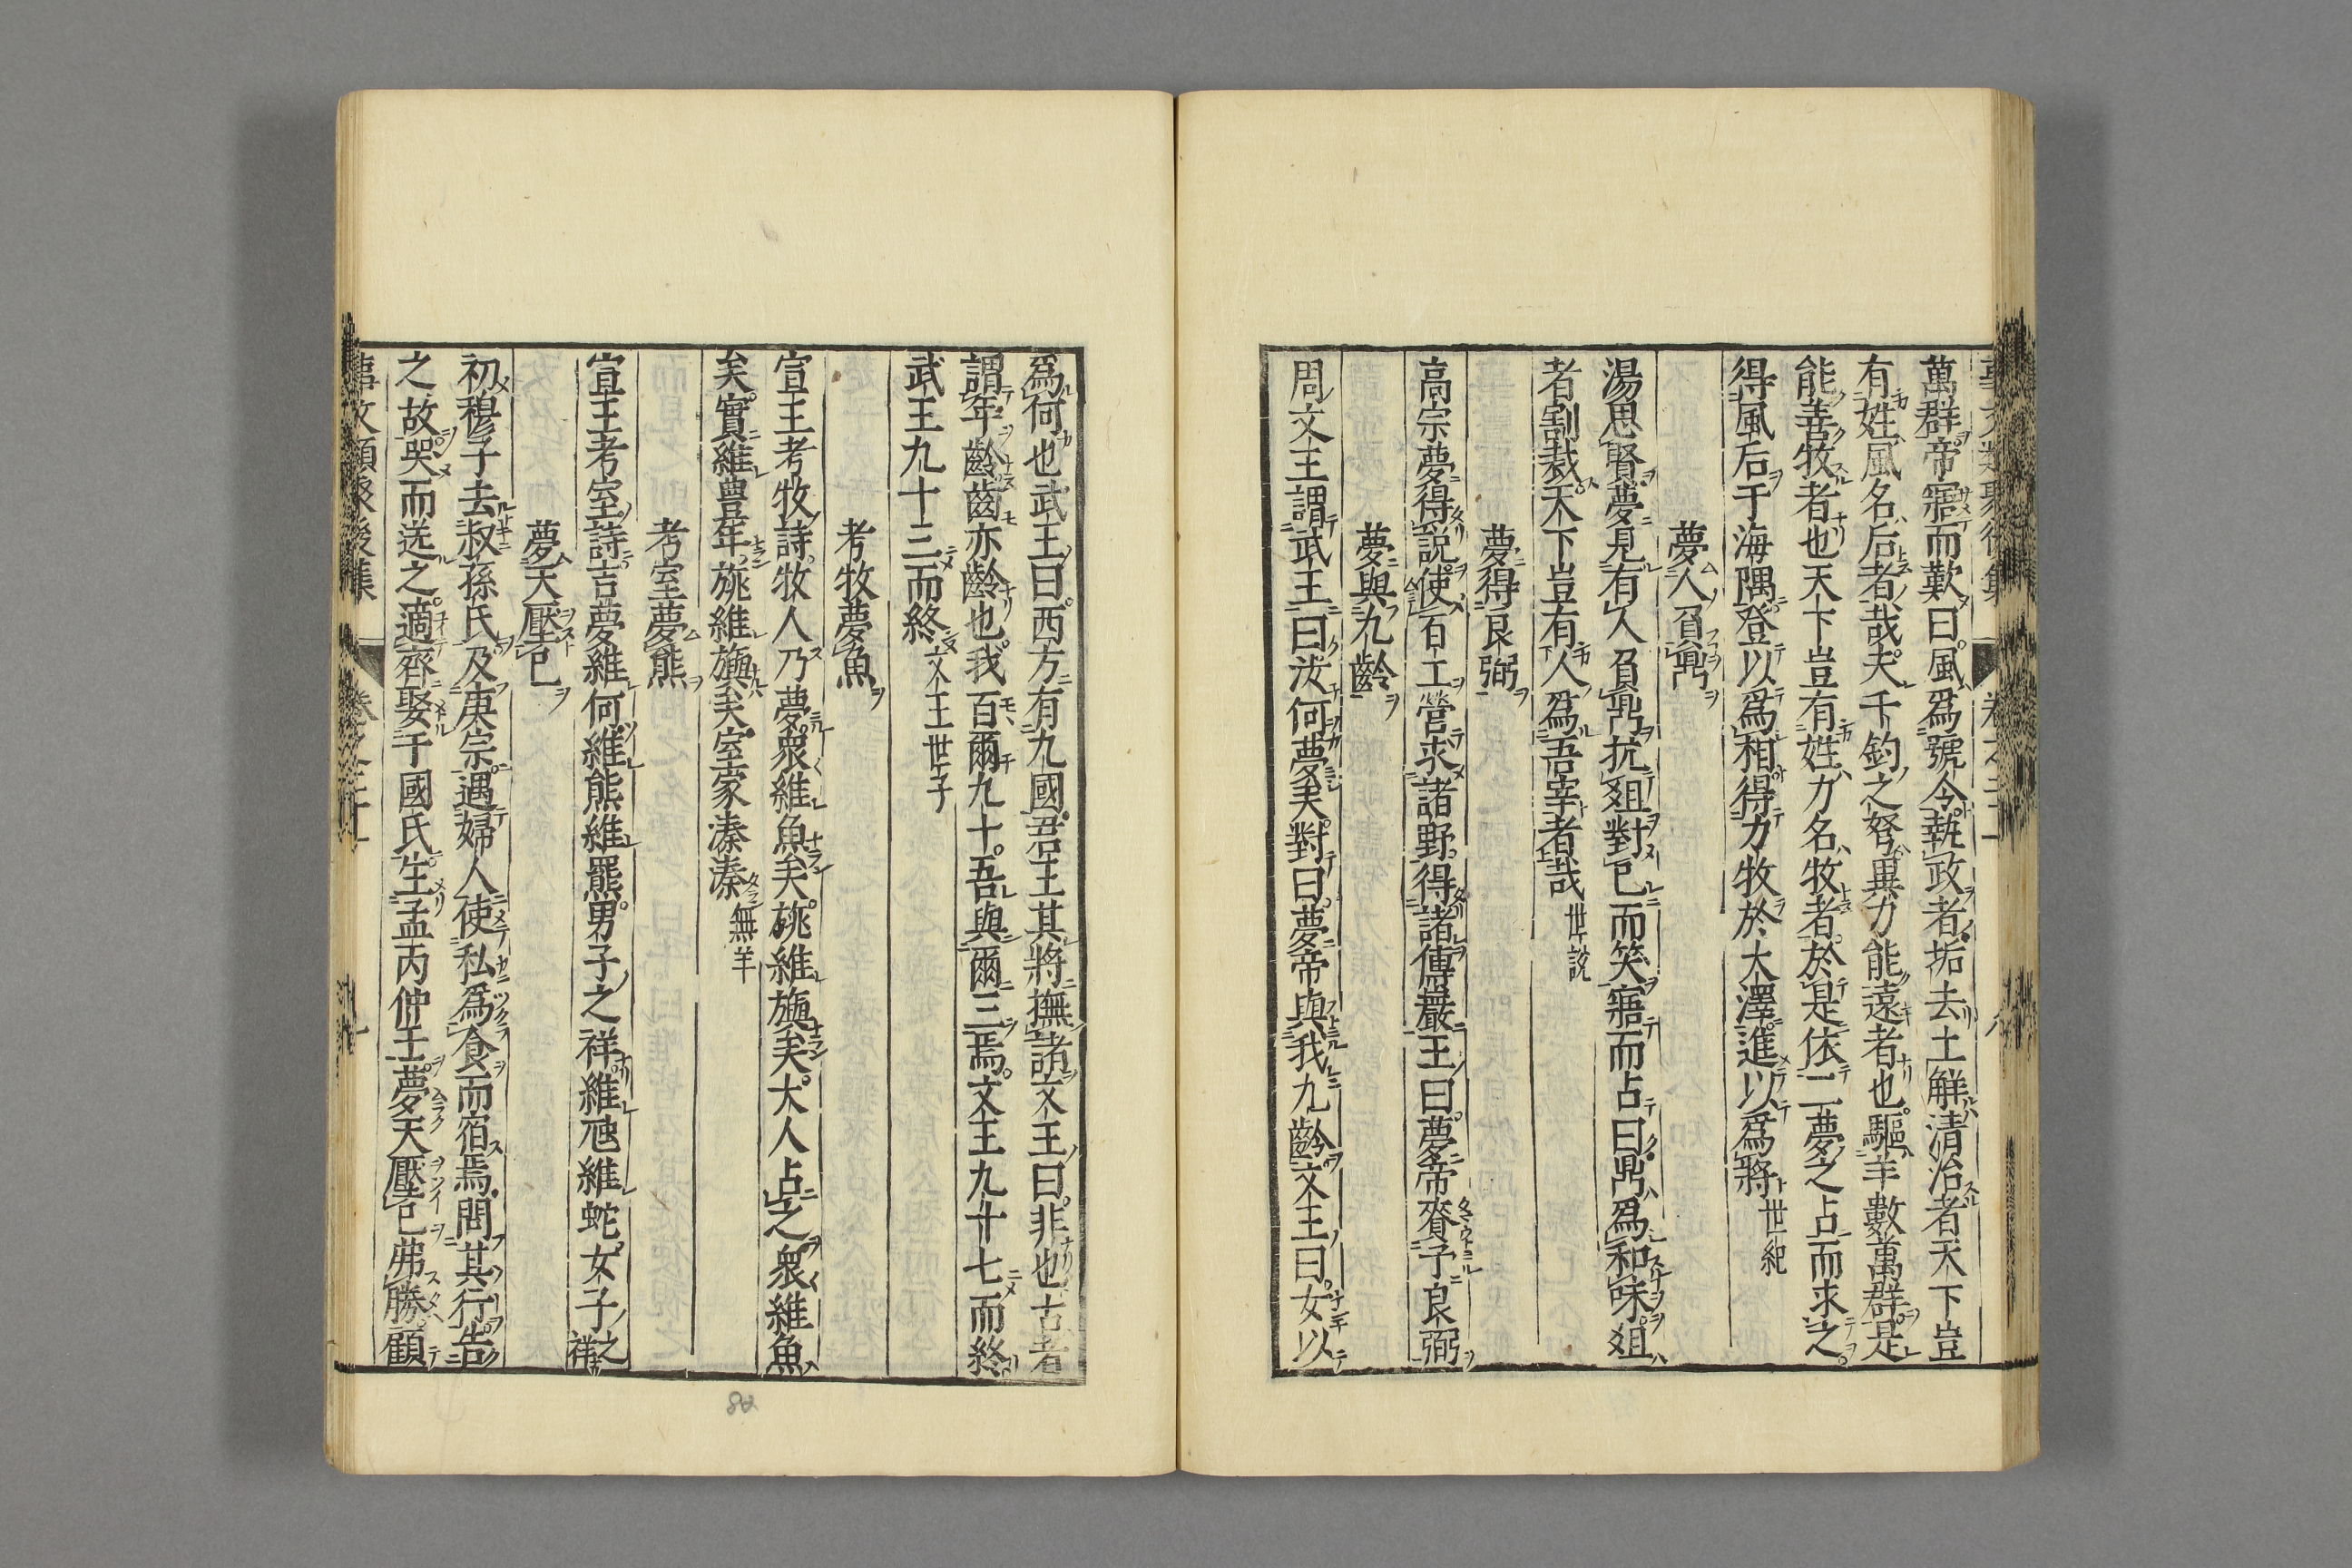 萬群帝寤而歎曰風爲號令執政者垢去土解清治者天下豈
有姓風名后者哉夫千鈞之弩異力能遠者也驅羊數萬群是
能善牧者也天下豈有姓力名牧者於是依二夢之占而求之
得風后于海隅登以爲相得力牧於大澤進以爲將世紀
夢人負鼎
湯思賢夢見有人負鼎抗俎對已而笑寤而占曰鼎爲和味俎
者割裁天下豈有人爲吾宰者哉世說
夢得良弼
高宗夢得說使百工營求諸野得諸傅巖王曰夢帝賚予良弼
夢與九齡
周文王謂武王曰汝何夢矣對曰夢帝與我九齡文王曰女以
爲何也武王曰西方有九國君王其將撫諸文王曰非也古者
謂年齡齒亦齡也我百爾九十吾與爾三焉文王九十七而終
武王九十三而終文王世子
考牧夢魚
宣王考牧詩牧人乃夢衆維魚矣旐維旟矣大人占之衆維魚
矣實維豊年旐維旟矣室家溱溱無羊
考室夢熊
宣王考室詩吉夢維何維熊維羆男子之祥維虺維蛇女子之祥
夢天壓己
初穆子去叔孫氏及庚宗遇婦人使私爲食而宿焉問其行告
之故哭而送之適齊娶于國氏生孟丙仲壬夢天壓己弗勝顧